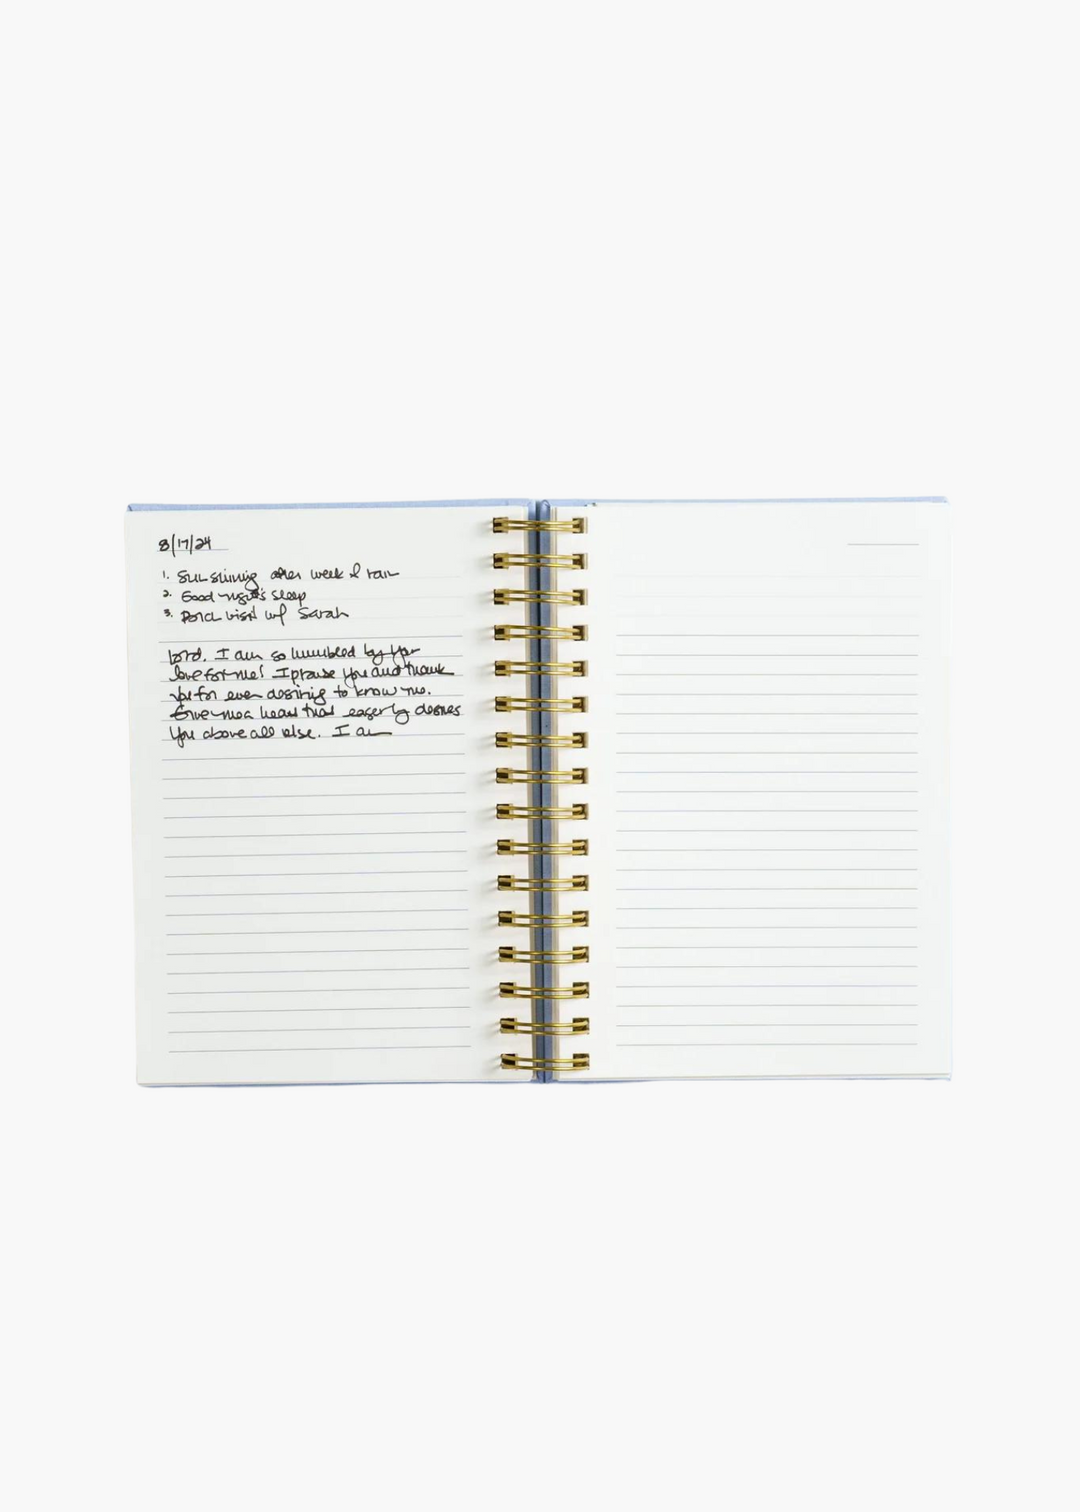 8/17/24
1. Sun shining after week of rain
2. Good night's sleep
3. Porch visit w/ Sarah
Lord. I am so humbled by Your
love for me! I praise You and thank
You for even desiring to know me.
Give me a heart that eagerly desires
You above all else. I am